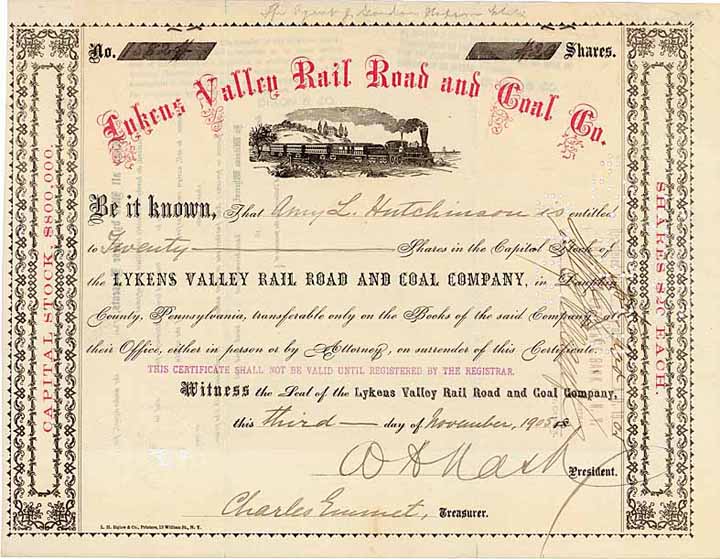 No. Shares.
Lykens Valley Rail Road and Coal Co.
CAPITAL STOCK, $800,000.
Be it known, That Amy L. Hutchinson is entitled
to Twenty Shares in the Capital Stock of
the LYKENS VALLEY RAIL ROAD AND COAL COMPANY, in Dauphin
County, Pennsylvania, transferable only on the Books of the said Company, at
their Office, either in person or by Attorney, on surrender of this Certificate.
THIS CERTIFICATE SHALL NOT BE VALID UNTIL REGISTERED BY THE REGISTRAR.
Witness the Seal of the Lykens Valley Rail Road and Coal Company,
this third day of November, 1905
President.
Charles Emmet, Treasurer.
L. H. Biglow & Co., Printers, 13 William St., N. Y.
SHARES $20 EACH.